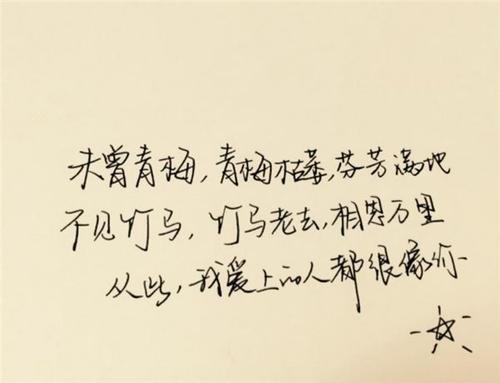 未曾青梅，青梅枯萎，芬芳满地
不见竹马，竹马老去，相思万里
从此，我爱上的人都很像你